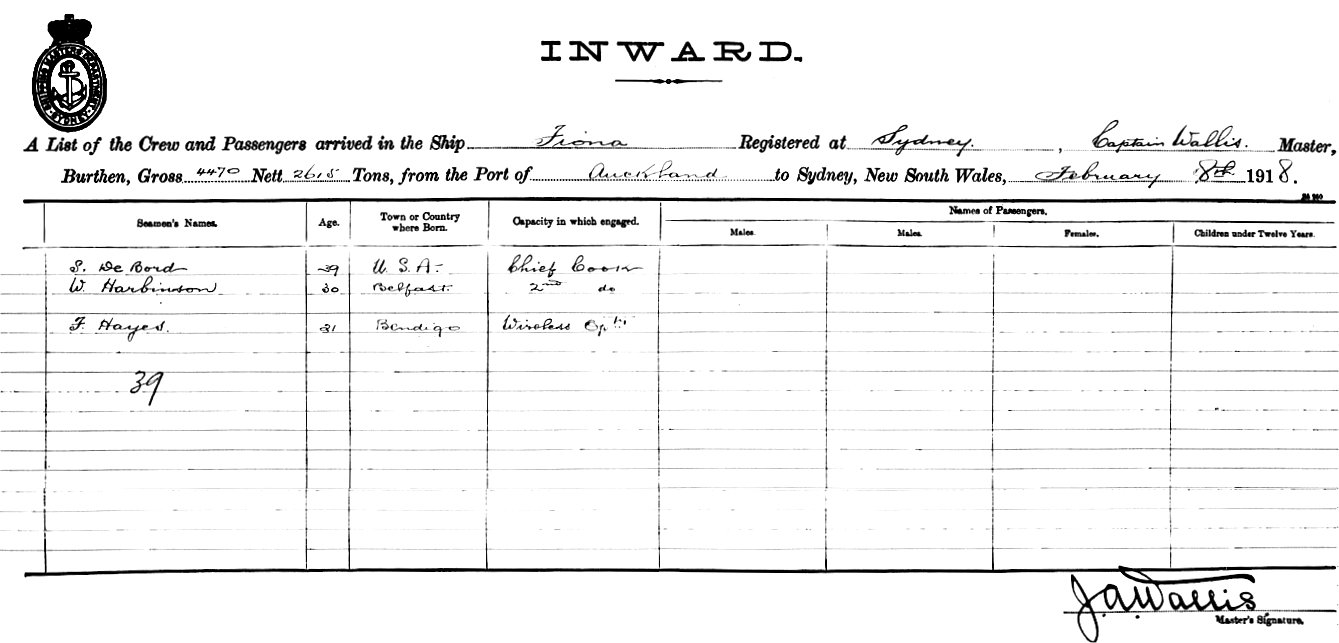 SHIPPING MASTER'S DEPARTMENT SYDNEY
INWARD.
A List of the Crew and Passengers arrived in the Ship Fiona Registered at Sydney. , Captain Wallis. Master,
Burthen, Gross 4470 Nett 2615 Tons, from the Port of Auckland to Sydney, New South Wales, February 8th 1918.
Names of Passengers.
Seamen's Names. Age. Town or Country where Born. Capacity in which engaged. Males. Males. Females. Children under Twelve Years.
S. De Bord 39 U.S.A. Chief Cook
W. Harbinson 30 Belfast. 2nd do
F. Hayes. 21 Bendigo Wireless Optr
39
J.A.Wallis
Master's Signature.